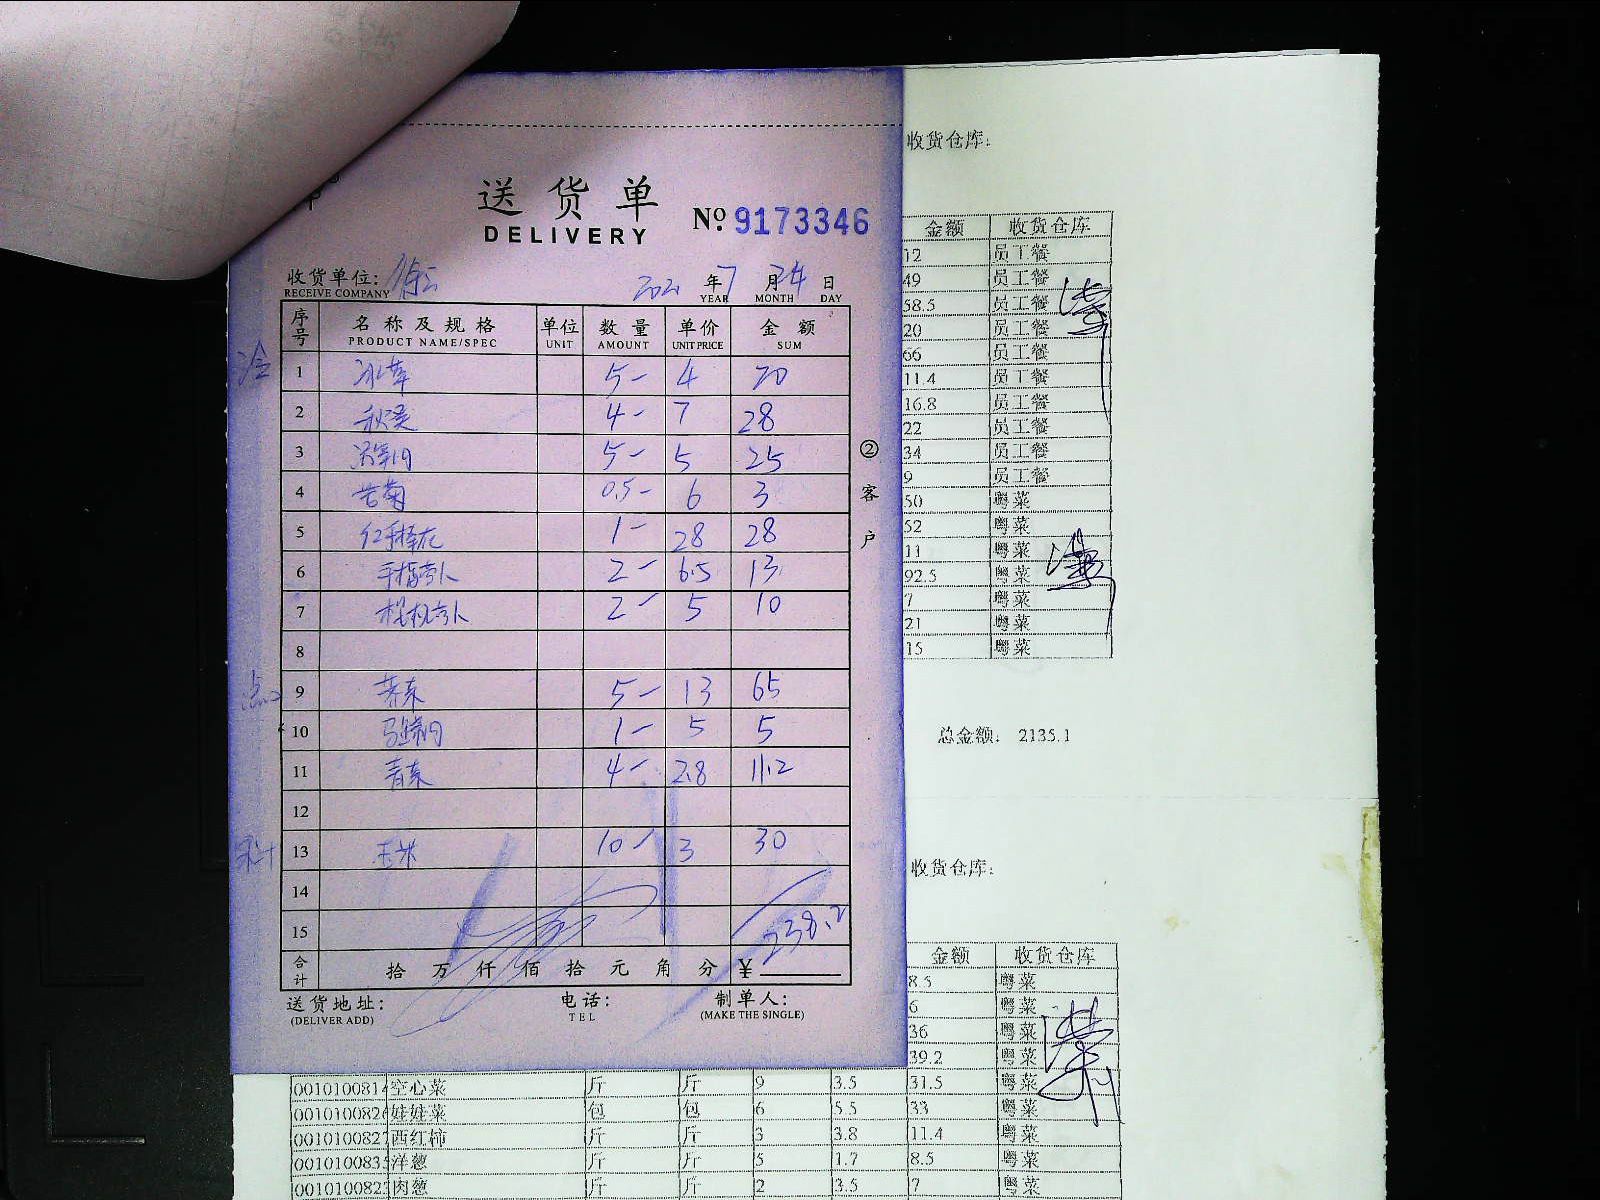 送货单
DELIVERY
№ 9173346
收货单位:
RECEIVE COMPANY
2021 年 7 月 24 日
YEAR MONTH DAY
序号 名称及规格 单位 数量 单价 金额
PRODUCT NAME/SPEC UNIT AMOUNT UNIT PRICE SUM
冷
1 冰草 5- 4 20
2 秋葵 4- 7 28
3 5- 5 25
4 苦菊 0.5- 6 3
5 1- 28 28
6 手指 2- 6.5 13
7 2- 5 10
8
点
9 5- 13 65
10 1- 5 5
11 4- 2.8 11.2
12
13 玉米 10- 3 30
14
15
238.2
合计 拾 万 仟 佰 拾 元 角 分 ¥
送货地址: 电话: 制单人:
(DELIVER ADD) TEL (MAKE THE SINGLE)
②客户
收货仓库:
金额 收货仓库
12 员工餐
49 员工餐
58.5 员工餐
20 员工餐
66 员工餐
11.4 员工餐
16.8 员工餐
22 员工餐
34 员工餐
9 员工餐
50 粤菜
52 粤菜
11 粤菜
92.5 粤菜
7 粤菜
21 粤菜
15 粤菜
总金额: 2135.1
收货仓库:
金额 收货仓库
8.5 粤菜
6 粤菜
36 粤菜
39.2 粤菜
001010081 空心菜 斤 斤 9 3.5 31.5 粤菜
001010082 娃娃菜 包 包 6 5.5 33 粤菜
001010082 西红柿 斤 斤 3 3.8 11.4 粤菜
001010083 洋葱 斤 斤 5 1.7 8.5 粤菜
001010082 肉葱 斤 斤 2 3.5 7 粤菜